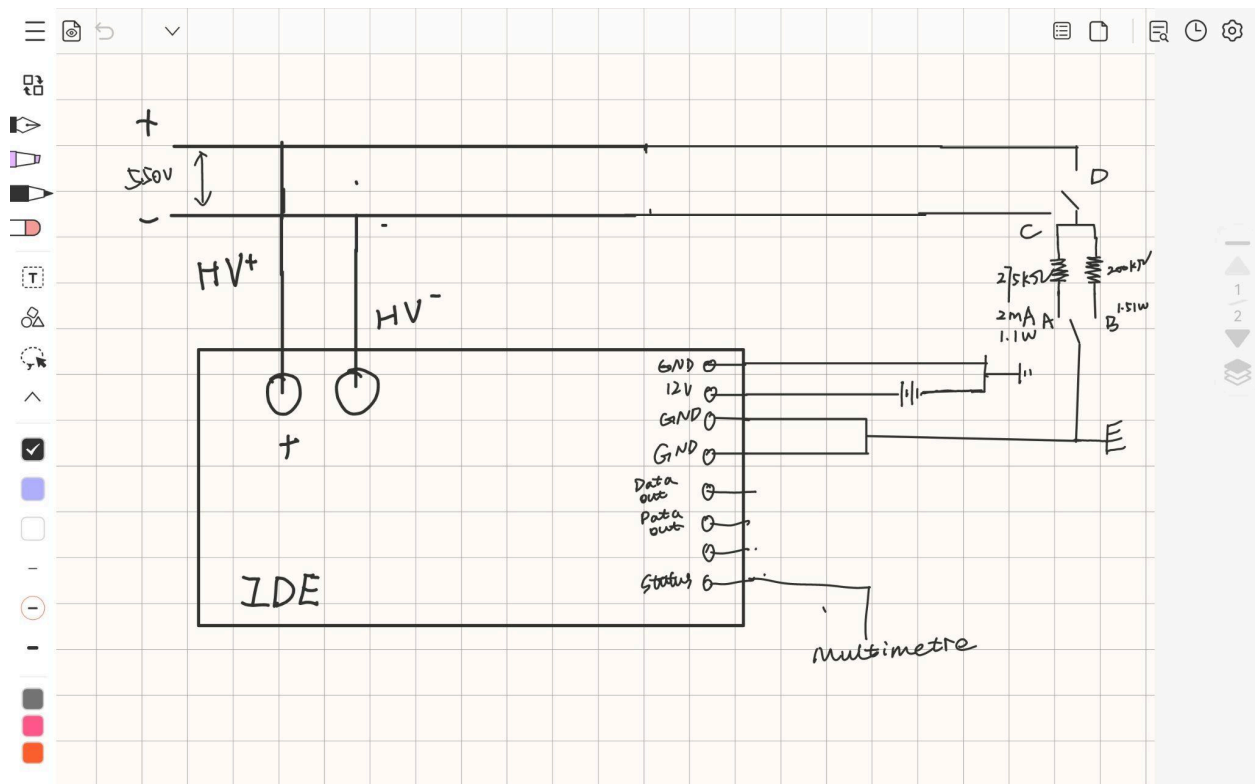 +
550V
-
D
-
C
HV+
HV-
275kΩ
200kΩ
2mA A
B
1.51W
1.1W
GND
12V
GND
GND
+
Data
out
Data
out
Status
IDE
Multimetre
T
1
2